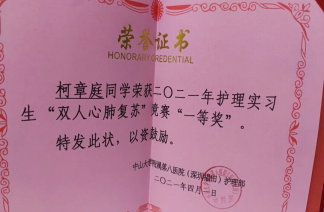 荣誉证书
HONORARY CREDENTIAL
柯章庭同学荣获二〇二一年护理实习
生“双人心肺复苏”竞赛“一等奖”。
特发此状，以资鼓励。
中山大学附属第八医院（深圳福田）护理部
二〇二一年四月一日